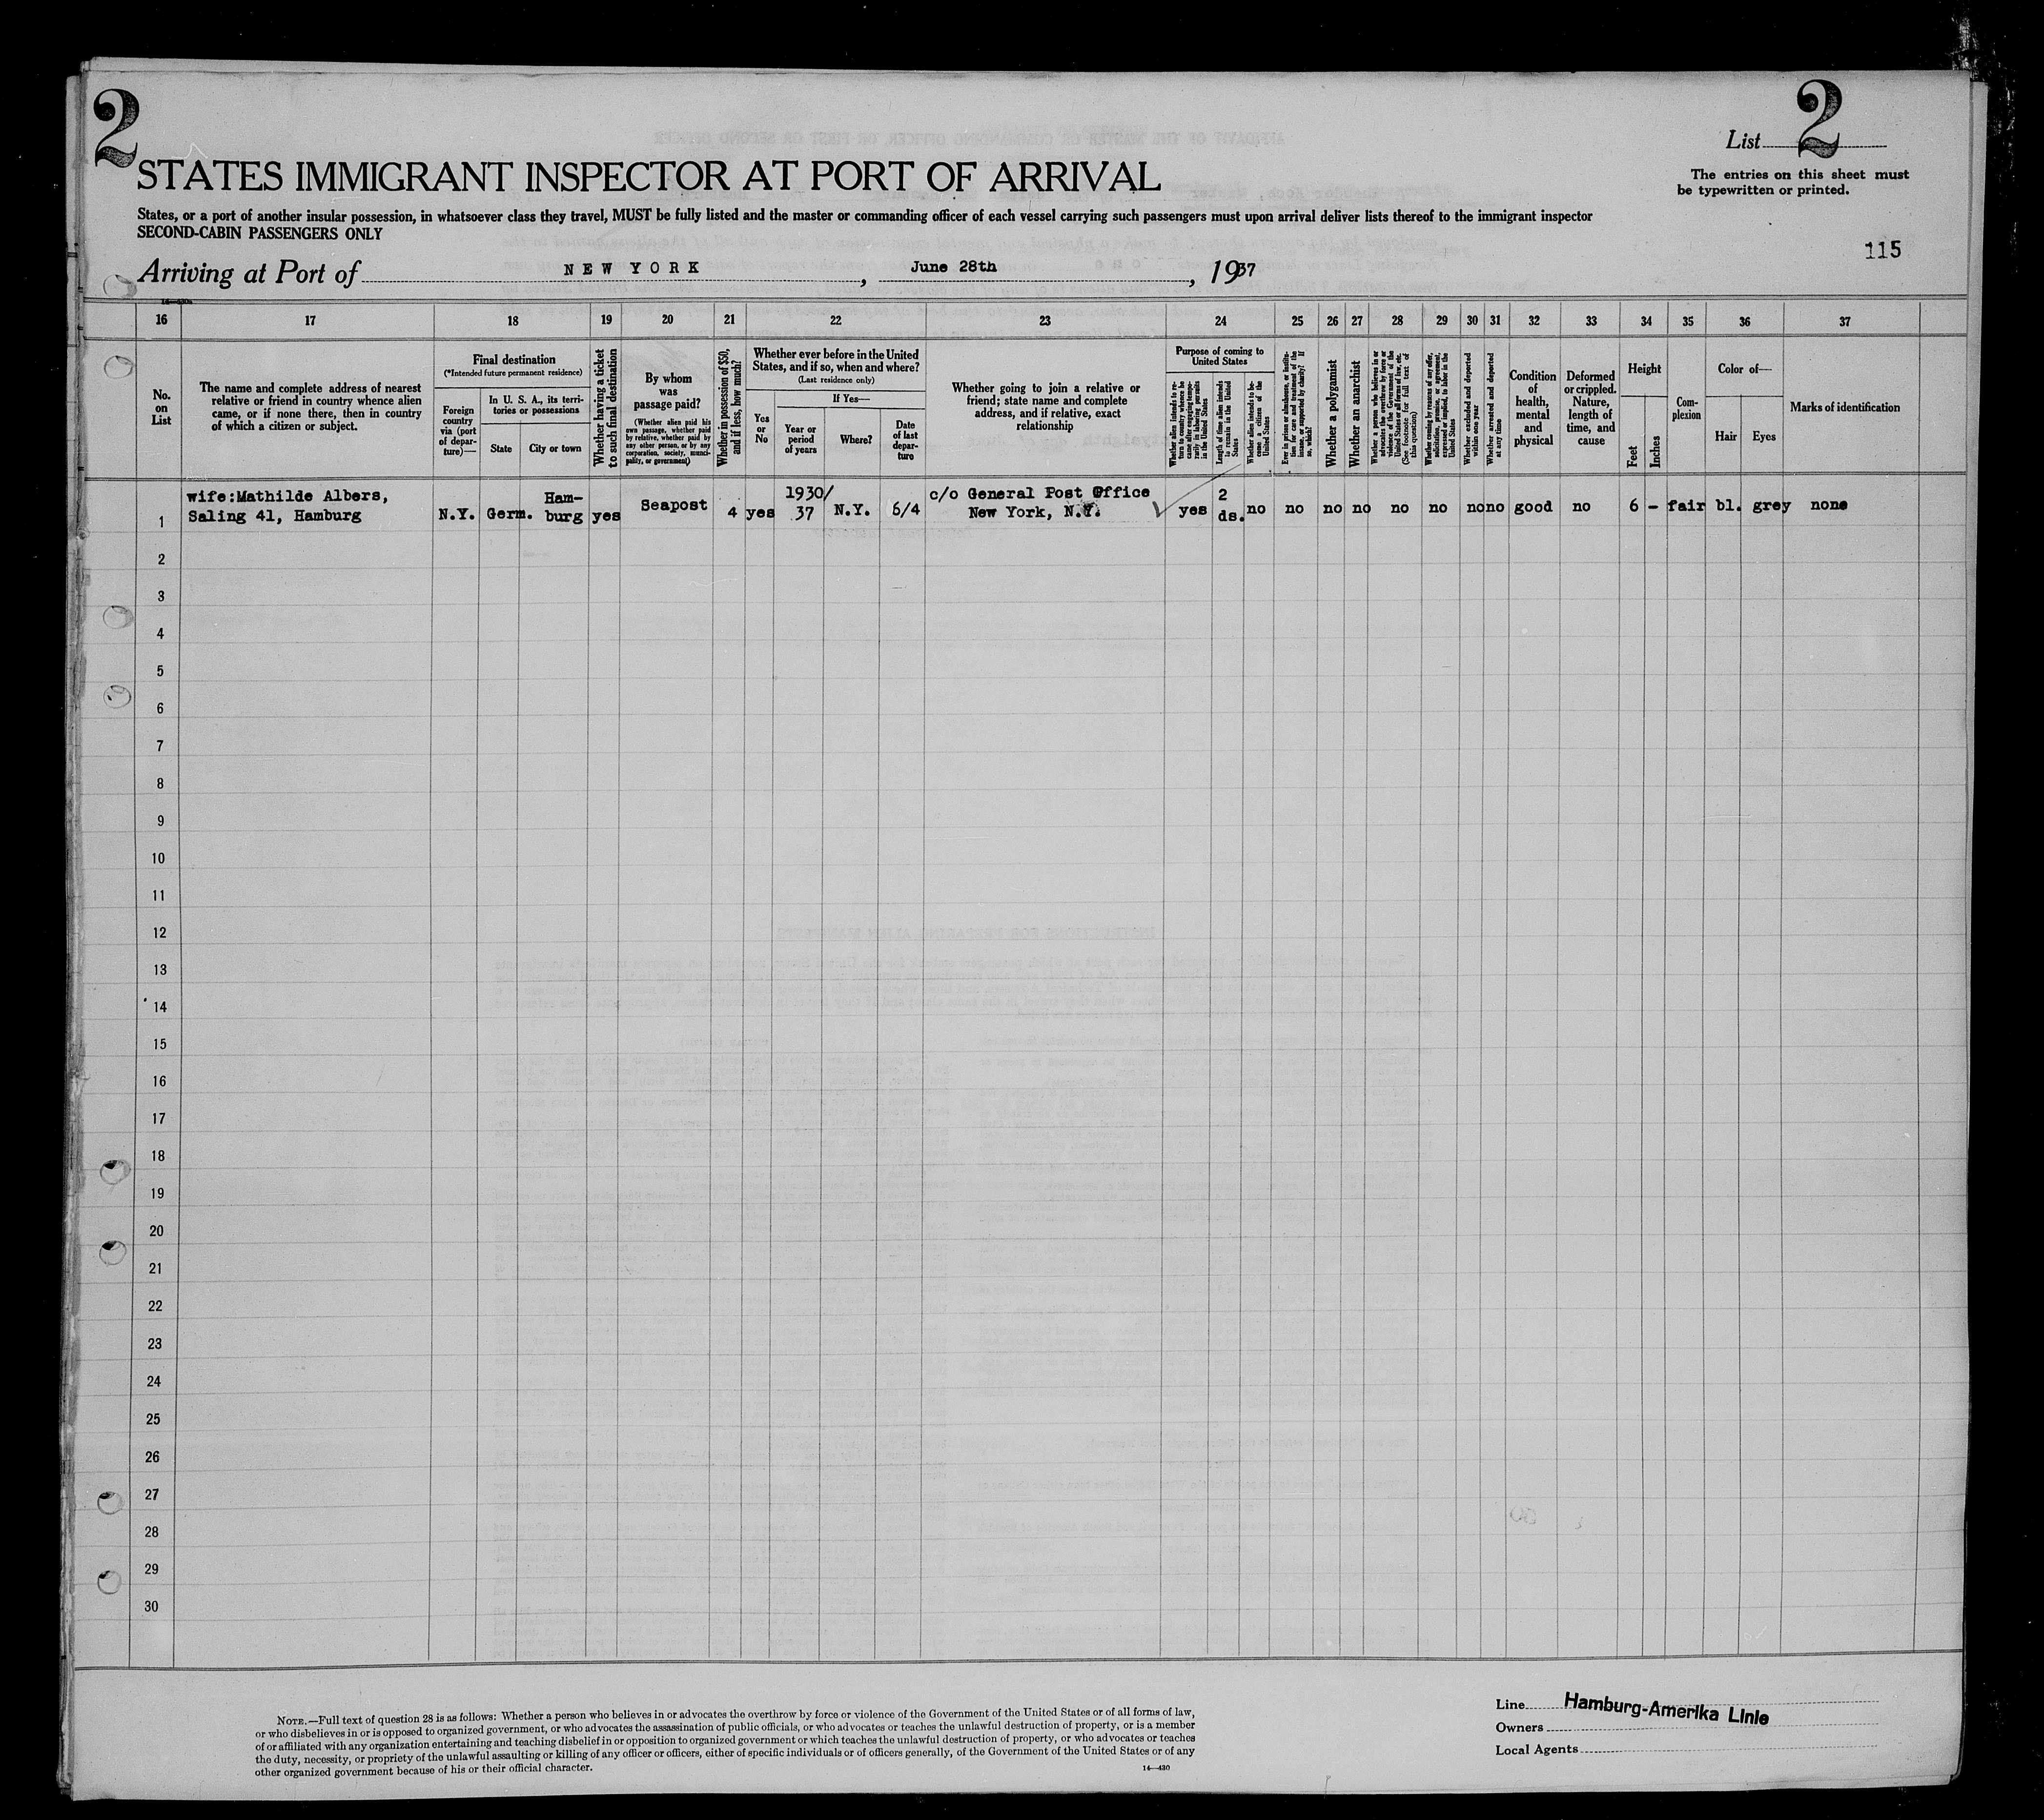 2
List 2
STATES IMMIGRANT INSPECTOR AT PORT OF ARRIVAL
The entries on this sheet must
be typewritten or printed.
States, or a port of another insular possession, in whatsoever class they travel, MUST be fully listed and the master or commanding officer of each vessel carrying such passengers must upon arrival deliver lists thereof to the immigrant inspector
SECOND-CABIN PASSENGERS ONLY
115
Arriving at Port of NEW YORK, June 28th, 1937
16 17 18 19 20 21 22 23 24 25 26 27 28 29 30 31 32 33 34 35 36 37
No.
on
List
The name and complete address of nearest
relative or friend in country whence alien
came, or if none there, then in country
of which a citizen or subject.
Final destination
(*Intended future permanent residence)
Foreign
country
via (port
of depar-
ture)—
In U. S. A., its terri-
tories or possessions
State
City or town
Whether having a ticket
to such final destination
By whom
was
passage paid?
(Whether alien paid his
own passage, whether paid
by relative, whether paid by
any other person, or by any
corporation, society, munici-
pality, or government)
Whether in possession of $50,
and if less, how much?
Whether ever before in the United
States, and if so, when and where?
(Last residence only)
Yes
or
No
If Yes—
Year or
period
of years
Where?
Date
of last
depar-
ture
Whether going to join a relative or
friend; state name and complete
address, and if relative, exact
relationship
Purpose of coming to
United States
Whether alien intends to re-
turn to country whence he
came after engaging tempo-
rarily in laboring pursuits
in the United States
Length of time alien intends
to remain in the United
States
Whether alien intends to be-
come a citizen of the
United States
Ever in prison or almshouse, or institu-
tion for care and treatment of the
insane, or supported by charity? If
so, which?
Whether a polygamist
Whether an anarchist
Whether a person who believes in or
advocates the overthrow by force or
violence of the Government of the
United States or all forms of law, etc.
(See footnote for full text of
this question)
Whether coming by reasons of any offer,
solicitation, promise, or agreement,
expressed or implied, to labor in the
United States
Whether excluded and deported
within one year
Whether arrested and deported
at any time
Condition
of
health,
mental
and
physical
Deformed
or crippled.
Nature,
length of
time, and
cause
Height
Feet
Inches
Com-
plexion
Color of—
Hair
Eyes
Marks of identification
wife:Mathilde Albers,
Saling 41, Hamburg
1 N.Y. Germ. Ham-
burg yes Seapost 4 yes 1930/
37 N.Y. 6/4 c/o General Post Office
New York, N.Y. yes 2
ds. no no no no no no no no good no 6 - fair bl. grey none
2
3
4
5
6
7
8
9
10
11
12
13
14
15
16
17
18
19
20
21
22
23
24
25
26
27
28
29
30
NOTE.—Full text of question 28 is as follows: Whether a person who believes in or advocates the overthrow by force or violence of the Government of the United States or of all forms of law,
or who disbelieves in or is opposed to organized government, or who advocates the assassination of public officials, or who advocates or teaches the unlawful destruction of property, or is a member
of or affiliated with any organization entertaining and teaching disbelief in or opposition to organized government or which teaches the unlawful destruction of property, or who advocates or teaches
the duty, necessity, or propriety of the unlawful assaulting or killing of any officer or officers, either of specific individuals or of officers generally, of the Government of the United States or of any
other organized government because of his or their official character.
14—430
Line Hamburg-Amerika Linie
Owners
Local Agents